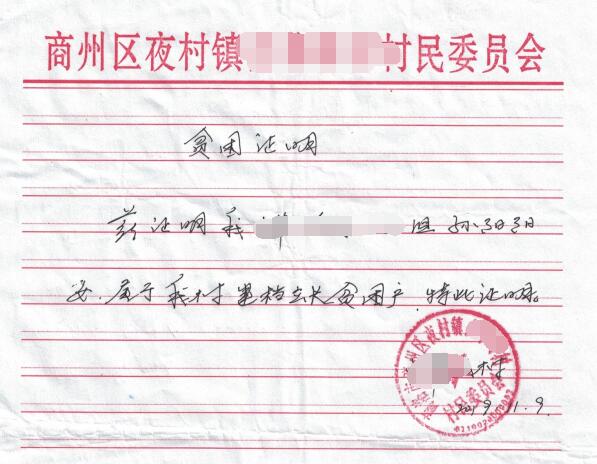 商州区夜村镇 村民委员会
贫困证明
兹证明我 组孙
安，属于我村建档立卡贫困户，特此证明。
商州区夜村镇
村
村民委员会
2019.11.9.